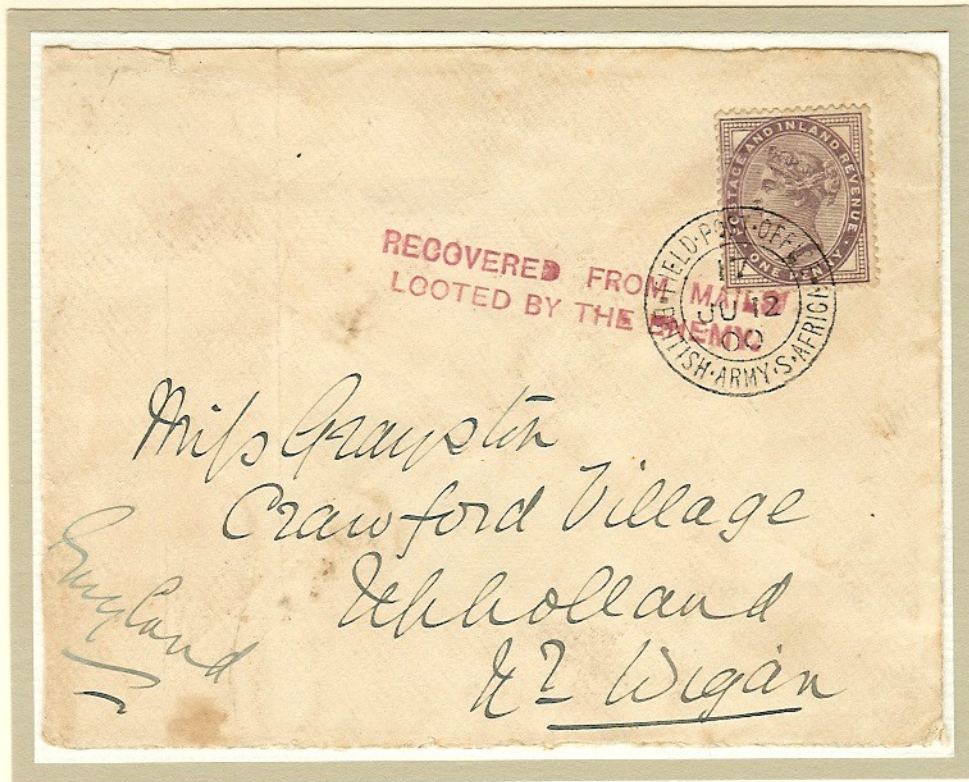 POSTAGE AND INLAND REVENUE
ONE PENNY
RECOVERED FROM MAILS
LOOTED BY THE ENEMY.
FIELD·POST·OFFICE
17
JU 12
00
BRITISH·ARMY·S·AFRICA
Miss Grayston
Crawford Village
Upholland
Nr Wigan
England